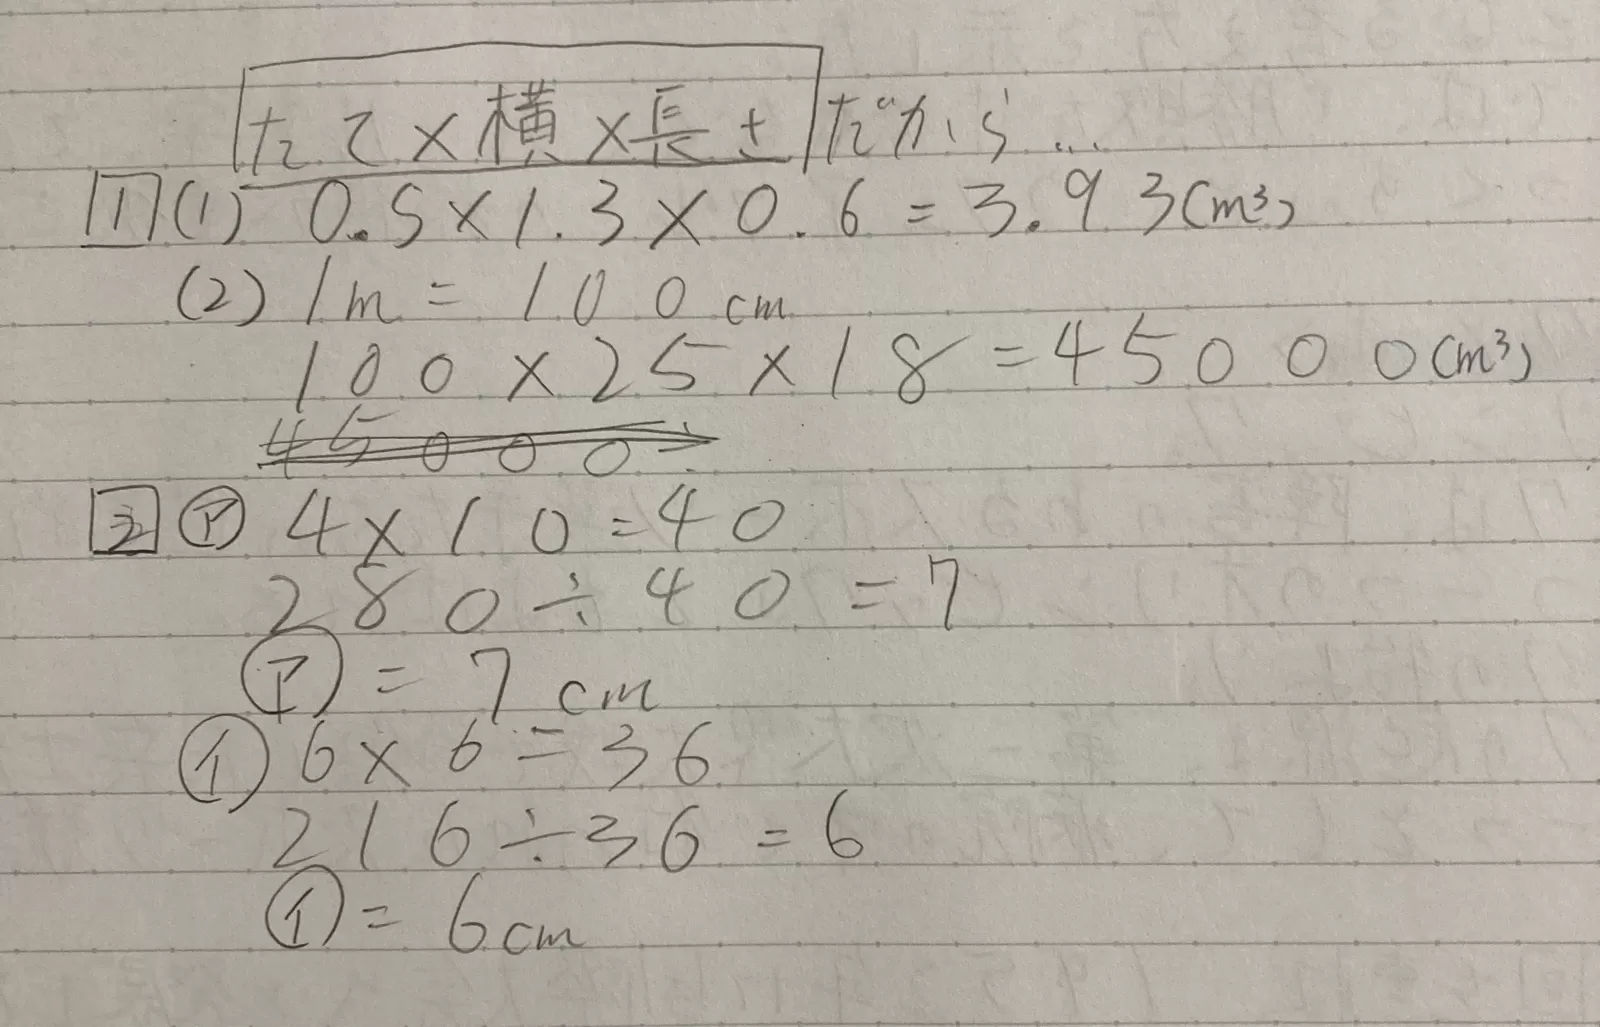 たて×横×長さだから...
1 (1) 0.5×1.3×0.6=3.93(m³)
(2) 1m=100cm
100×25×18=45000(m³)
45000
2 ㋐ 4×10=40
280÷40=7
㋐=7cm
㋑ 6×6=36
216÷36=6
㋑=6cm